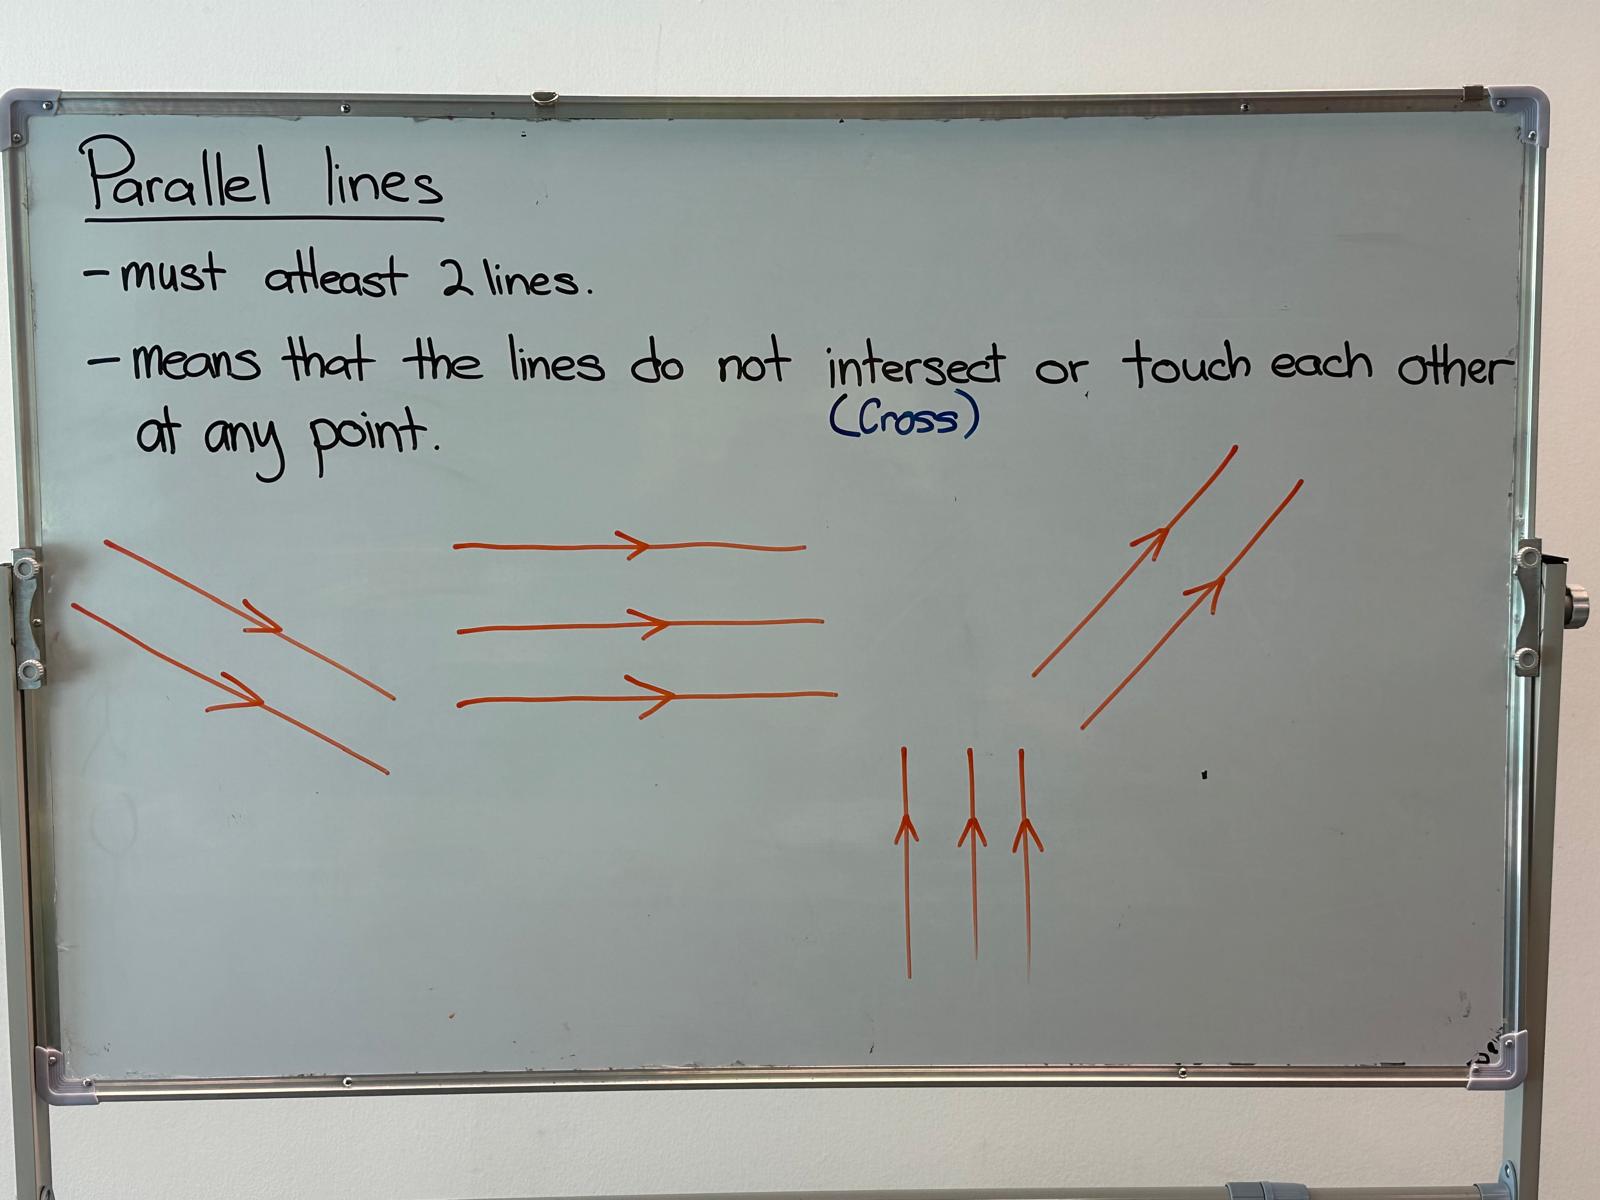 Parallel lines
- must atleast 2 lines.
- means that the lines do not intersect or touch each other
(Cross)
at any point.